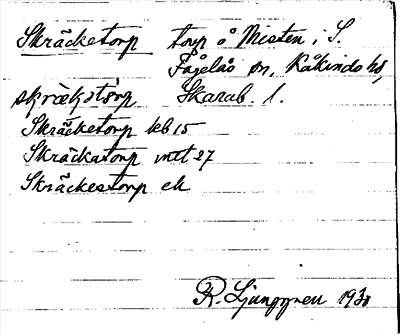 Skräcketorp torp å Nisten i S.
Fågelås sn, Kåkinds hd,
Skarab. l.
Skräcketorp kb 15
Skräckatorp mtl 27
Skräckestorp ek
R. Ljunggren 1931